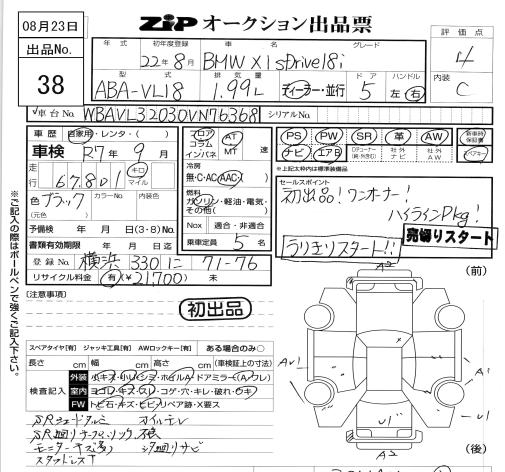 08月23日
出品No.
38
ZIP オークション出品票
評価点
4
内装
C
年式 初年度登録 車名 グレード
22年8月 BMW X1 sDrive18i
型式 排気量 ドア ハンドル
ABA-VL18 1.99L ディーラー・並行 5 左・右
車台No. WBAVL32030VN76368 シリアルNo.
車歴 自家用・レンタ・( )
車検 R7年9月
走行 67,801 キロ マイル
色 ブラック カラーNo. 内装色
(元色)
予備検 年 月 日(3・8)No.
書類有効期限 年 月 日迄
登録No. 横浜 330 に 71-76
リサイクル料金 有(¥21,700) 未
フロア
コラム
インパネ
AT
MT
速
冷房
無・C・AC(AAC)
燃料
ガソリン・軽油・電気・
その他( )
Nox 適合・非適合
乗車定員 5 名
PS PW SR 革 AW 新車時保証書
ナビ エアB 社外ナビ 社外AW スペアキー
※上記太枠内は標準装備品
セールスポイント
初出品!ワンオーナー!
ハイラインPkg!
売切りスタート
うりきりスタート!!
(注意事項)
初出品
スペアタイヤ[有] ジャッキ工具[有] AWロックキー[有] ある場合のみ〇
長さ cm 幅 cm 高さ cm (車検証上の寸法)
検査記入
外装 小キズ・小凹・シミ・ホイルA・ドアミラー(A・ワレ)
室内 ヨゴレ・キズ・スレ・コゲ・穴・キレ・破れ・ウキ
FW トビ石・キズ・ヒビ・リペア跡・X要ス
モニターキズ
下廻りサビ
スタッドレス
(前)
A2
AU1
A1
U1
U1
A2
(後)
※ご記入の際はボールペンで強くご記入下さい。